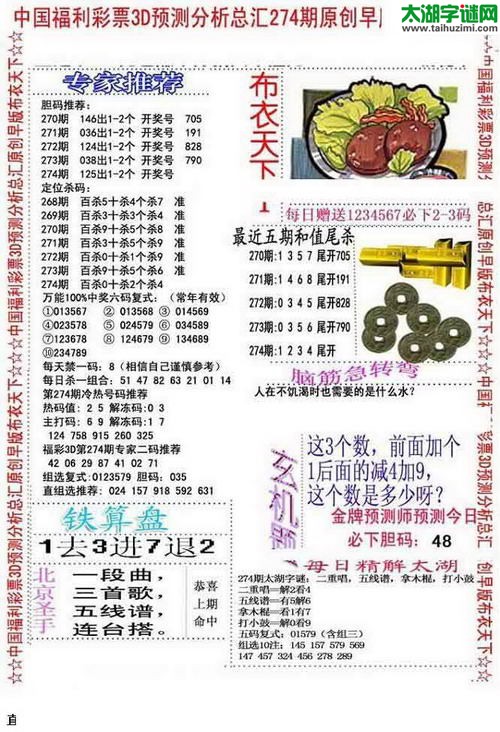 中国福利彩票3D预测分析总汇274期原创早
太湖字谜网
www.taihuzimi.com
☆☆中国福利彩票3D预测分析总汇原创早版布衣天下☆☆
专家推荐
胆码推荐:
270期 146出1-2个 开奖号 705
271期 036出1-2个 开奖号 191
272期 124出1-2个 开奖号 828
273期 038出1-2个 开奖号 790
274期 125出1-2个 开奖号
定位杀码:
268期 百杀5十杀4个杀7 准
269期 百杀3十杀2个杀4 准
270期 百杀5十杀4个杀3 准
271期 百杀3十杀2个杀5 准
272期 百杀0十杀1个杀9 准
273期 百杀5十杀7个杀6 准
274期 百杀0十杀2个杀4
万能100%中奖六码复式:（常年有效）
①013567 ② 013568 ③ 014569
④023578 ⑤ 024579 ⑥ 034589
⑦123678 ⑧ 124679 ⑨ 134689
⑩234789
每天禁一码: 8（相信自己谨慎参考）
每日杀一组合: 51 47 82 63 21 01 14
第274期冷热号码推荐
热码值: 2 5 解冻码: 0 3
主打码: 6 9 解冻码: 1 7
124 758 915 260 325
福彩3D第274期专家二码推荐
42 06 29 87 41 02 71
组选复式: 0123579 胆码: 035
直组选推荐: 024 157 918 592 631
铁算盘
1去3进7退2
北京圣手
一段曲，
三首歌，
五线谱，
连台搭。
恭喜
上期
命中
布衣天下
每日赠送1234567必下2-3码
最近五期和值尾杀
270期:1 3 5 7 尾开705
271期:1 4 6 8 尾开191
272期:0 3 4 5 尾开828
273期:0 3 5 6 尾开790
274期:1 2 3 4 尾开
脑筋急转弯
人在不饥渴时也需要的是什么水?
玄机
这3个数，前面加个
1后面的减4加9，
这个数是多少呀?
金牌预测师预测今日
必下胆码: 48
每日精解太湖
274期太湖字谜: 二重唱，五线谱，拿木棍，打小鼓
二重唱==解2看4
五线谱==有5解6
拿木棍==看1有7
打小鼓==解0看9
五码复式: 01579（含组三）
组选10注: 145 157 579 569
147 457 324 456 278 289